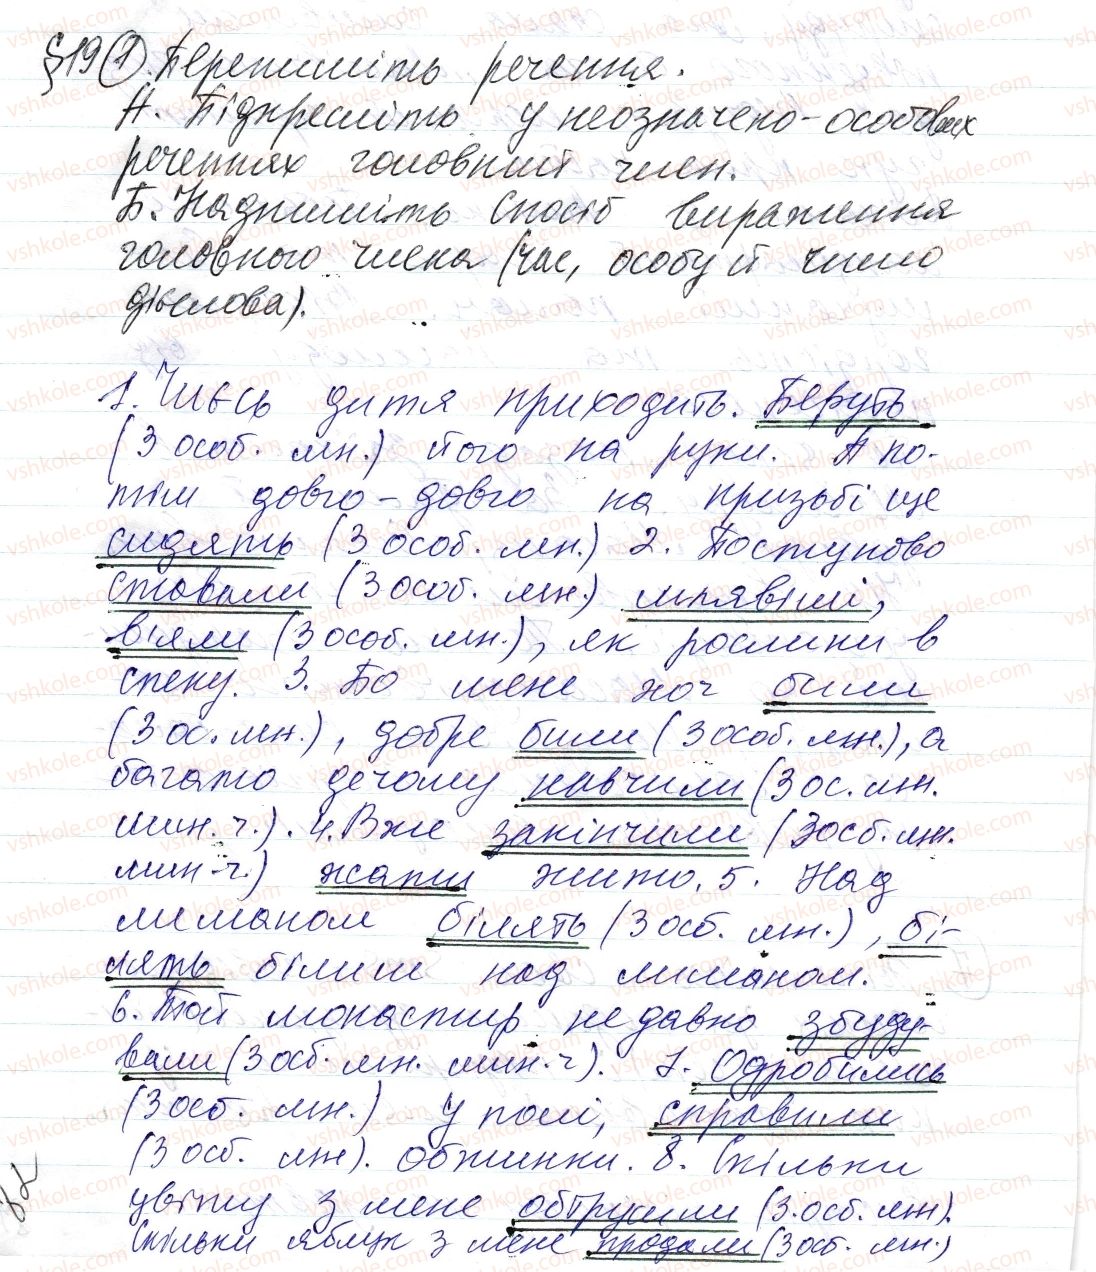 §19 1. Перепишіть речення.
А. Підкресліть у неозначено-особових
реченнях головний член.
Б. Надпишіть спосіб вираження
головного члена (час, особу й число
дієслова).
1. Чиєсь дитя приходить. Беруть
(3 особ. мн.) його на руки. А по-
тім довго-довго на призьбі ще
сидять (3 особ. мн.) 2. Поступово
ставали (3 особ. мн.) мляві,
в'яли (3 особ. мн.), як рослини в
спеку. 3. Бо мене хоч били
(3 ос. мн.), добре били (3 особ. мн.), а
багато дечому навчили (3 ос. мн.
мин. ч.). 4. Вже закінчили (3 осб. мн.
мин. ч.) жати жито. 5. Над
лиманом білять (3 осб. мн.), бі-
лять білим над лиманом.
6. Той монастир недавно збуду-
вали (3 осб. мн. мин. ч). 7. Одробились
(3 осб. мн.) у полі, справили
(3 осб. мн). обжинки. 8. Скільки
цвіту з мене обтрусили (3. осб. мн).
Скільки яблук з мене продали (3 осб. мн.)
82